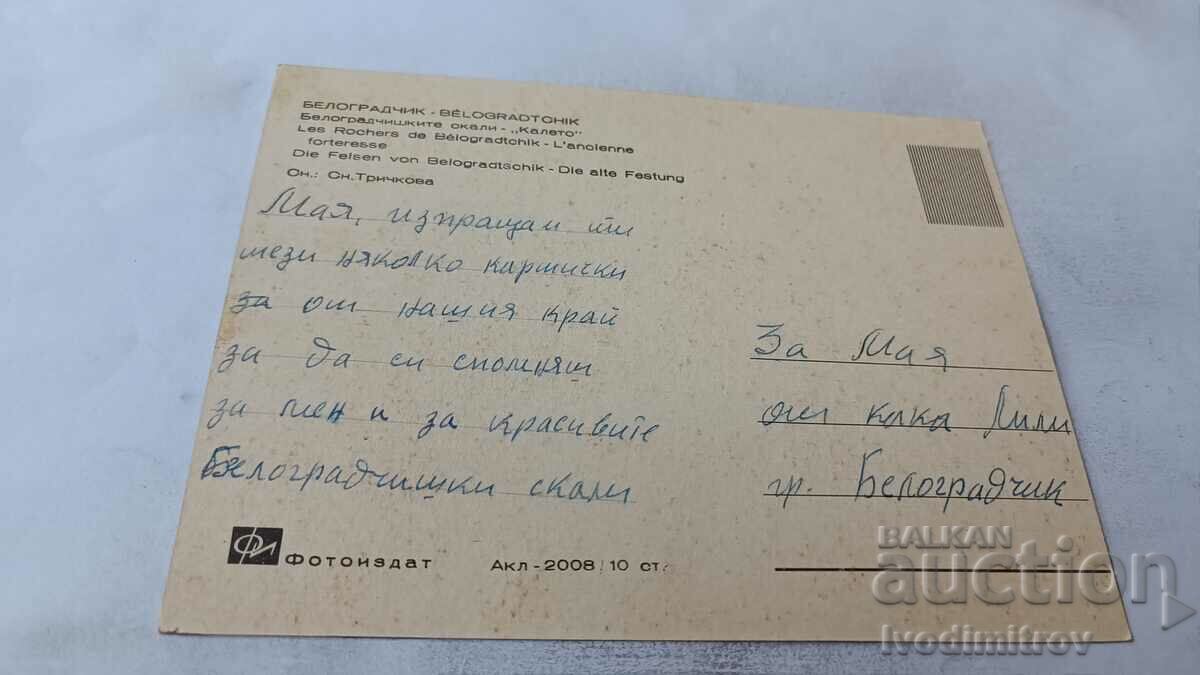 БЕЛОГРАДЧИК - BÉLOGRADTCHIK
Белоградчишките скали - „Калето"
Les Rochers de Bélogradtchik - L'ancienne
forteresse
Die Felsen von Belogradtschik - Die alte Festung
Сн.: Сн. Тричкова
Мая, изпращам ти
тези няколко картички
за от нашия край
за да си спомняш
за мен и за красивите
Белоградчишки скали
За Мая
от кака Лили
гр. Белоградчик
ФИ Фотоиздат
Акл-2008 10 ст.
BALKAN
auction
Ivodimitrov